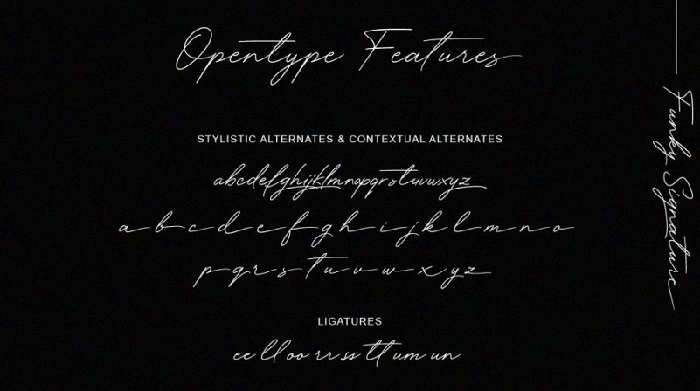 Opentype Features
STYLISTIC ALTERNATES & CONTEXTUAL ALTERNATES
abcdefghijklmnopqrstuvwxyz
a b c d e f g h i j k l m n o
p q r s t u v w x y z
LIGATURES
ee ll oo rr ss tt um un
Funky Signature